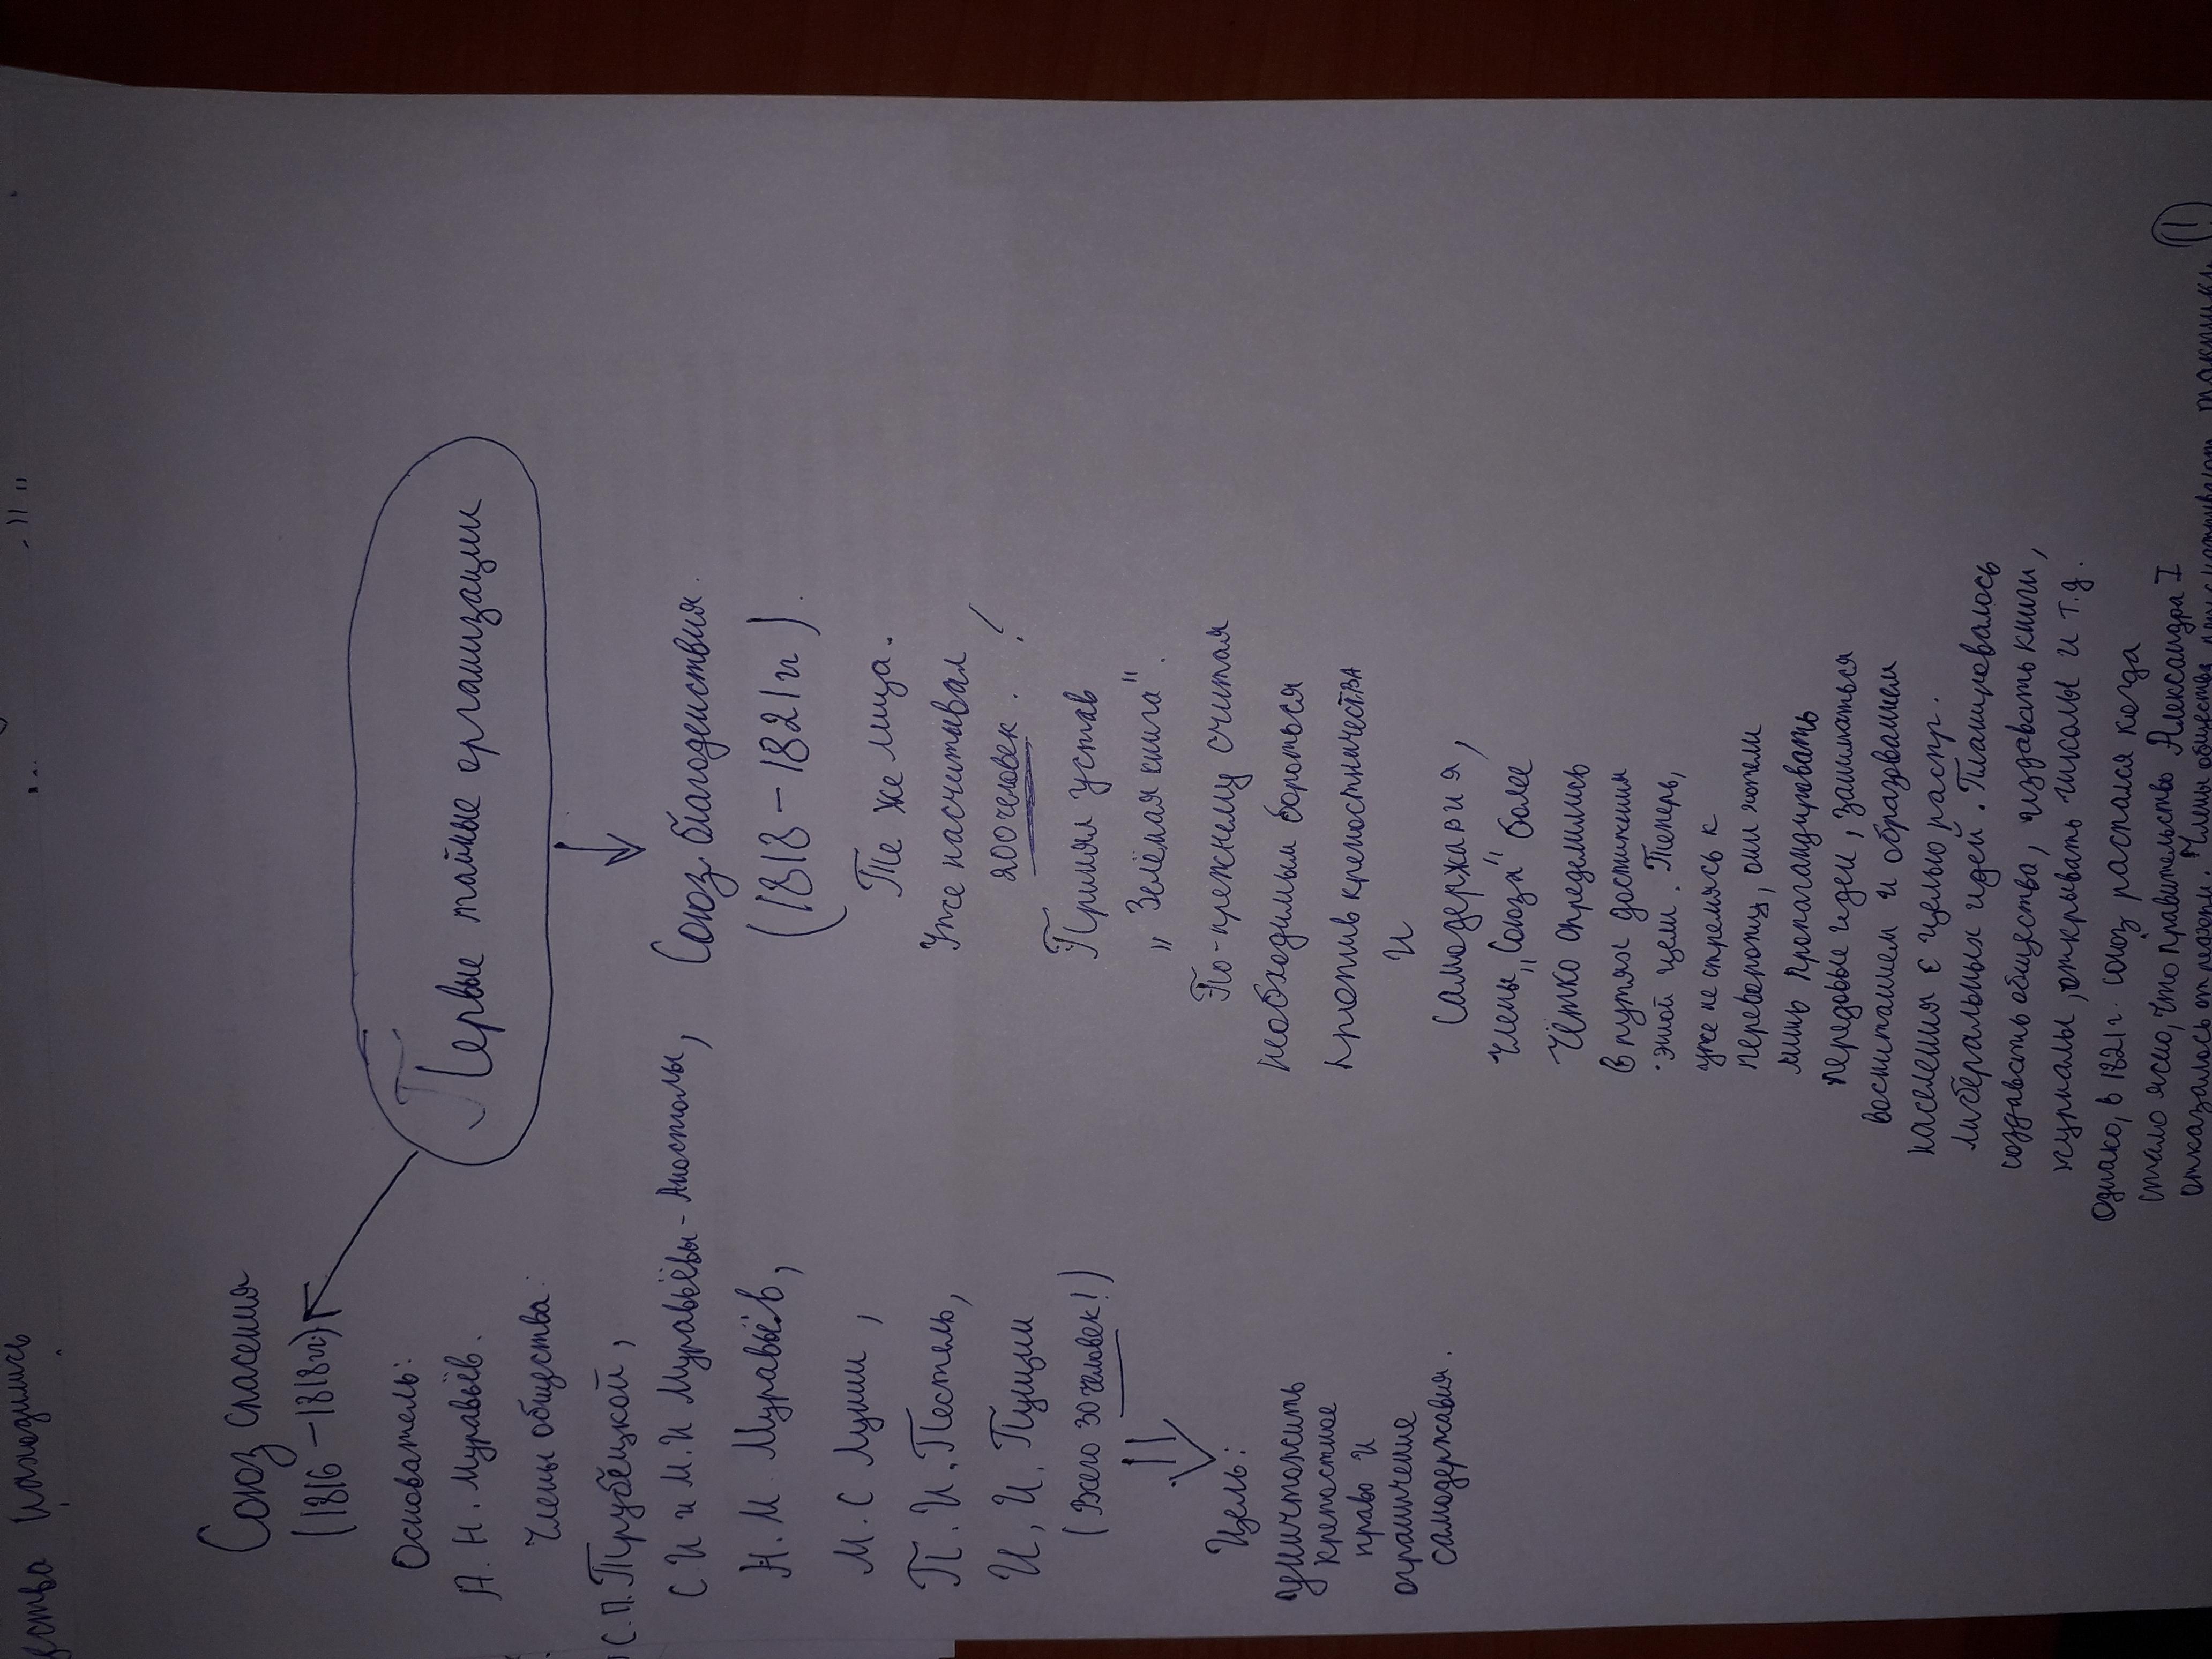 Первые тайные организации
Союз спасения
(1816-1818гг)
Основатель:
А. Н. Муравьёв.
Члены общества:
С.П. Трубецкой,
С. И и М. И Муравьёвы-Апостолы,
Н. М. Муравьёв,
М. С Лунин,
П. И. Пестель,
И, И. Пущин
(Всего 30 человек!)
Цель:
Уничтожить
крепостное
право и
ограничение
самодержавия.
Союз благоденствия.
(1818-1821гг).
Те же лица.
Уже насчитывал
200 человек. !
Принял устав
„Зелёная книга".
По-прежнему считая
необходимым бороться
против крепостничества
и
самодержавия,
члены „Союза" более
чётко определились
в путях достижения
этой цели. Теперь,
уже не стремясь к
перевороту, они хотели
лишь пропагандировать
передовые идеи, заниматься
воспитанием и образованием
населения с целью распр.
либеральных идей. Планировалось
создавать общества, издавать книги,
журналы, открывать школы и т.д.
Однако, в 1821г. союз распался когда
стало ясно, что правительство Александра I
отказалось от реформ. Члены общества
щества находились